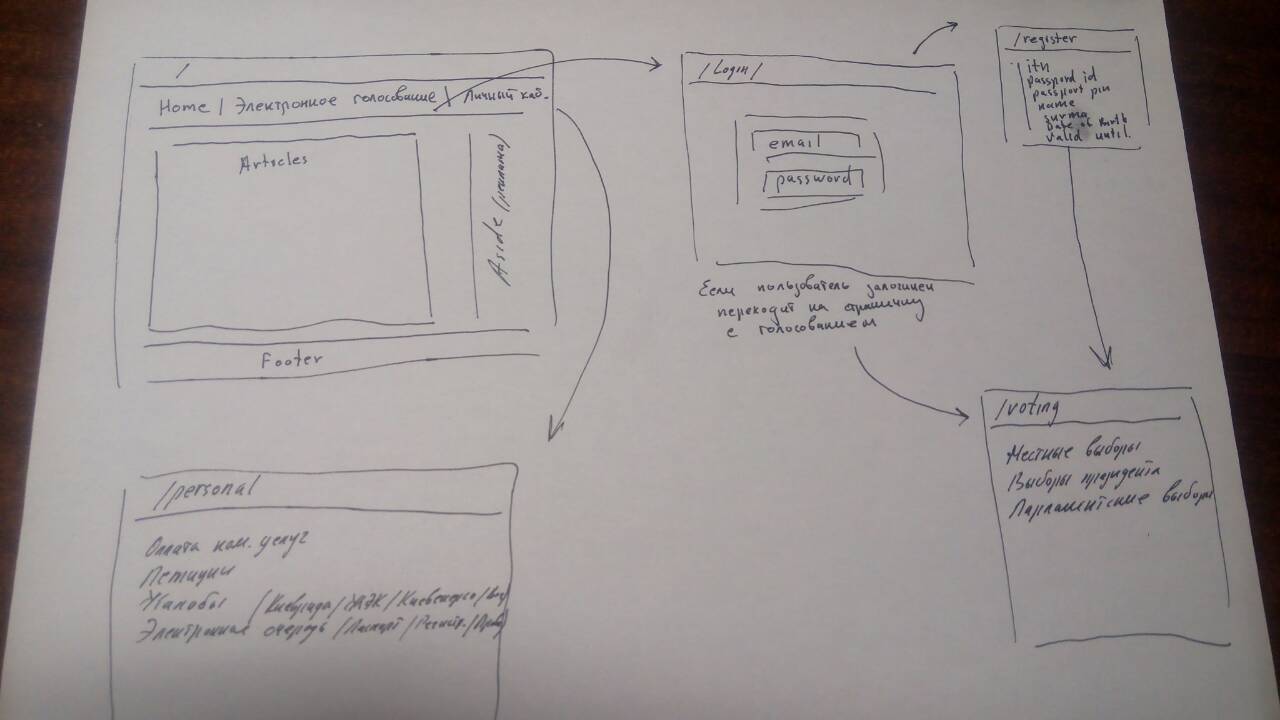 /
Home | Электронное голосование | Личный каб.
Articles
Aside (реклама)
Footer
/Login/
email
password
Если пользователь залогинен
переходит на страницу
с голосованием
/register
itn
passport pin
name
Date of birth
valid until.
/voting
Местные выборы
Выборы президента
Парламентские выборы
/personal
Оплата ком. услуг
Петиции
Жалобы / / ЖЭК / Киевэнерго /
Электронная очередь / Паспорт / Регистр. /